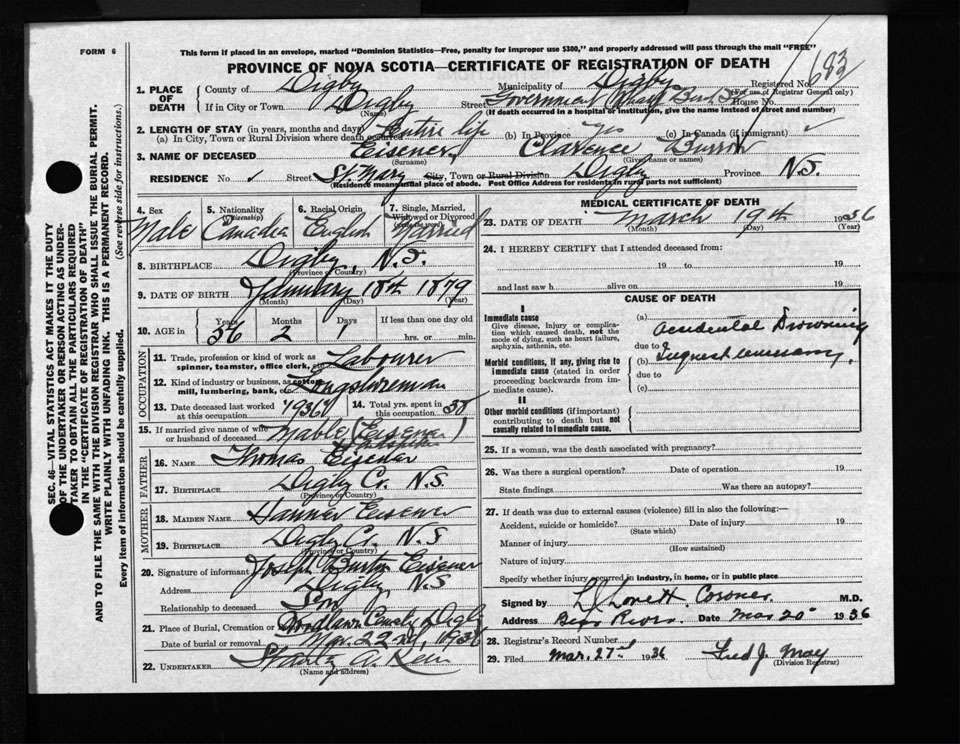 FORM 6
This form if placed in an envelope, marked "Dominion Statistics—Free, penalty for improper use $300," and properly addressed will pass through the mail "FREE"
PROVINCE OF NOVA SCOTIA—CERTIFICATE OF REGISTRATION OF DEATH
1. PLACE OF DEATH
County of Digby Municipality of Digby Registered No.
(For use of Registrar General only)
If in City or Town Digby Street Government Wharf House No.
(Name) (If death occurred in a hospital or institution, give the name instead of street and number)
2. LENGTH OF STAY (in years, months and days)
(a) In City, Town or Rural Division where death occurred Entire life (b) In Province yes (c) In Canada (if immigrant)
3. NAME OF DECEASED Eisener, Clarence
(Surname) (Given name or names)
RESIDENCE No. Street St. Mary City, Town or Rural Division Digby Province N.S.
(Residence means usual place of abode. Post Office Address for residents in rural parts not sufficient)
SEC. 46—VITAL STATISTICS ACT MAKES IT THE DUTY
OF THE UNDERTAKER OR PERSON ACTING AS UNDER-
TAKER TO OBTAIN ALL THE PARTICULARS REQUIRED
IN THE "CERTIFICATE OF REGISTRATION OF DEATH"
AND TO FILE THE SAME WITH THE DIVISION REGISTRAR WHO SHALL ISSUE THE BURIAL PERMIT.
WRITE PLAINLY WITH UNFADING INK. THIS IS A PERMANENT RECORD.
Every item of information should be carefully supplied. (See reverse side for instructions.)
4. Sex Male
5. Nationality (Citizenship)
6. Racial Origin English
7. Single, Married, Widowed or Divorced Married
8. BIRTHPLACE Digby, N.S.
(Province or Country)
9. DATE OF BIRTH January 18th 1879
(Month) (Day) (Year)
10. AGE in Years 56 Months 2 Days 1 If less than one day old
hrs. or min.
OCCUPATION
11. Trade, profession or kind of work as
spinner, teamster, office clerk, etc. Labourer
12. Kind of industry or business, as cotton
mill, lumbering, bank, etc. Longshoreman
13. Date deceased last worked
at this occupation 1936
14. Total yrs. spent in
this occupation 38
15. If married give name of wife
or husband of deceased Mable (Eisener)
FATHER
16. NAME Thomas Eisener
17. BIRTHPLACE Digby Co. N.S.
(Province or Country)
MOTHER
18. MAIDEN NAME Hanner Eisener
19. BIRTHPLACE Digby Co. N.S
(Province or Country)
20. Signature of informant Joseph Burton Eisener
Address Digby N.S
Relationship to deceased Son
21. Place of Burial, Cremation or Removal Digby
Date of burial or removal Mar. 22nd, 1936
22. UNDERTAKER
(Name and address)
MEDICAL CERTIFICATE OF DEATH
23. DATE OF DEATH March 19th 1936
(Month) (Day) (Year)
24. I HEREBY CERTIFY that I attended deceased from:
19 to 19
and last saw h alive on 19
CAUSE OF DEATH
I
Immediate cause
Give disease, injury or complica-
tion which caused death, not the
mode of dying, such as heart failure,
asphyxia, asthenia, etc.
(a) Accidental Drowning
due to
Morbid conditions, if any, giving rise to
immediate cause (stated in order
proceeding backwards from im-
mediate cause).
(b) Inquest unnecessary.
due to
(c)
II
Other morbid conditions (if important)
contributing to death but not
causally related to immediate cause.
25. If a woman, was the death associated with pregnancy?
26. Was there a surgical operation? Date of operation 19
State findings Was there an autopsy?
27. If death was due to external causes (violence) fill in also the following:—
Accident, suicide or homicide? Date of injury 19
(State which)
Manner of injury
(How sustained)
Nature of injury
Specify whether injury occurred in industry, in home, or in public place
Signed by Lovett. Coroner. M.D.
Address Bear River. Date Mar 20 1936
28. Registrar's Record Number
29. Filed Mar. 27 1936 Fred J. May
(Division Registrar)